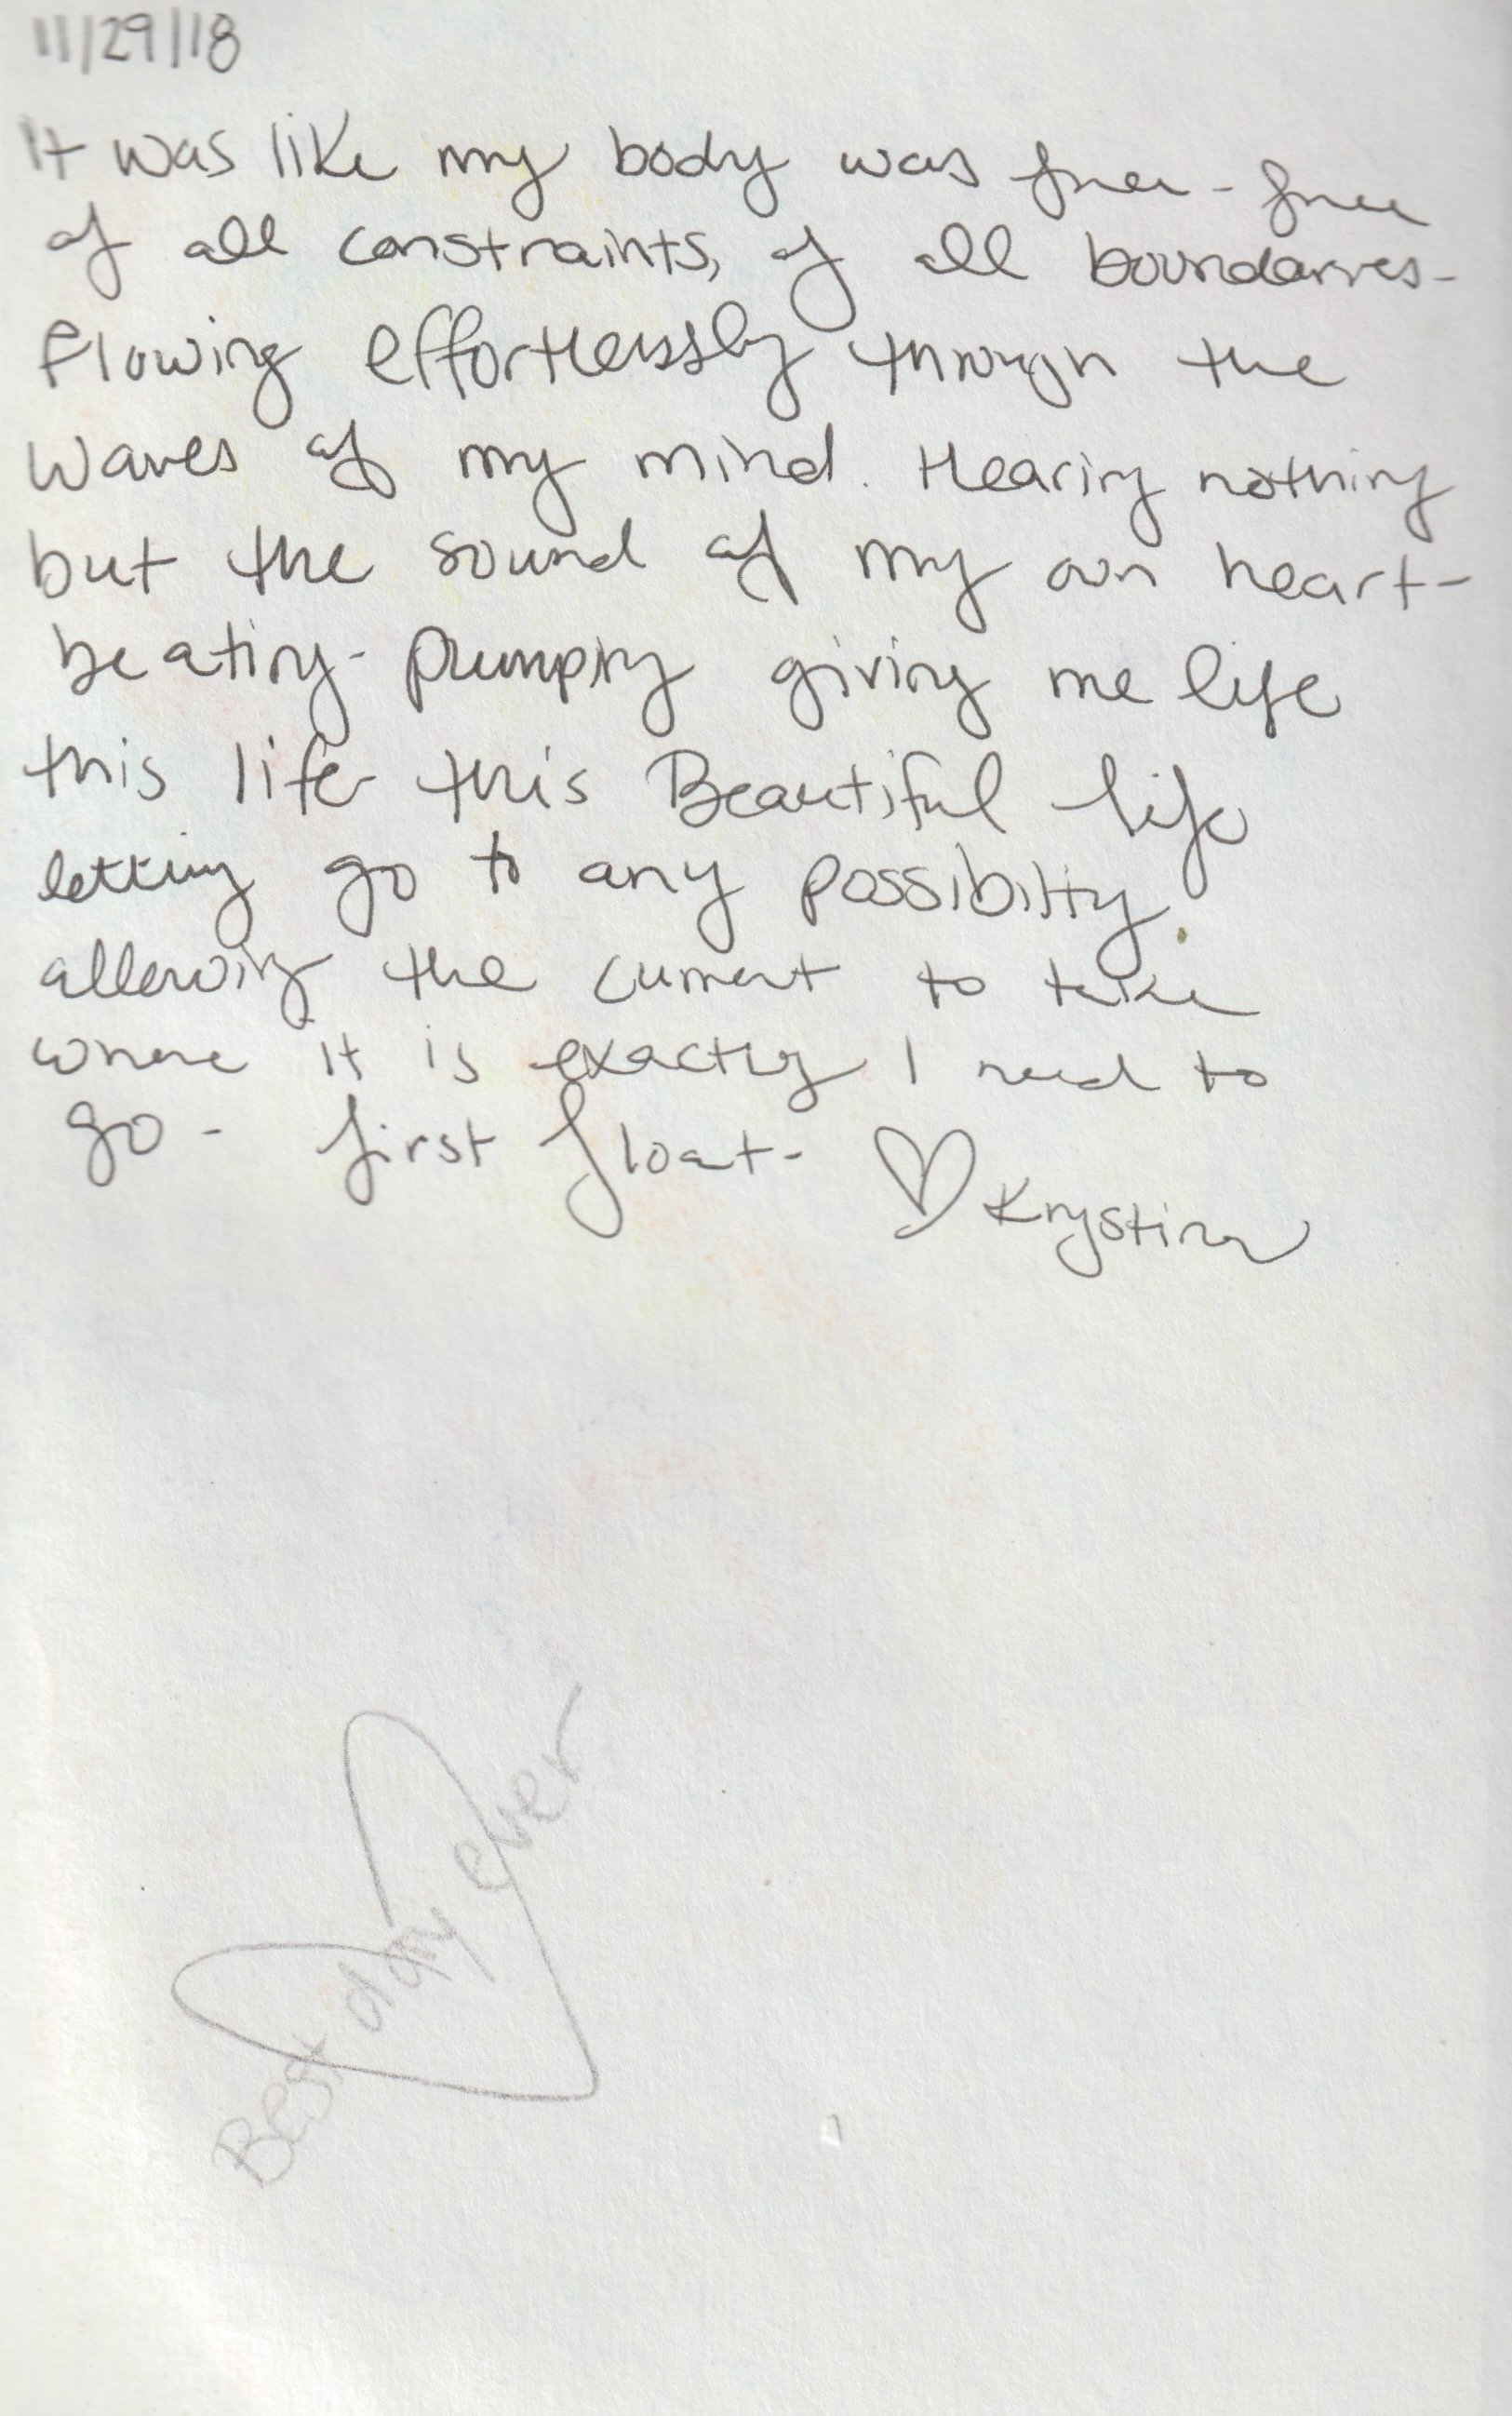 11/29/18
It was like my body was free - free
of all constraints, of all boundaries -
Flowing effortlessly through the
waves of my mind. Hearing nothing
but the sound of my own heart -
beating - pumping giving me life
this life this Beautiful life
letting go to any possibility.
allowing the current to take
where it is exactly I need to
go - first float - ♡ Krystina
Best day ever